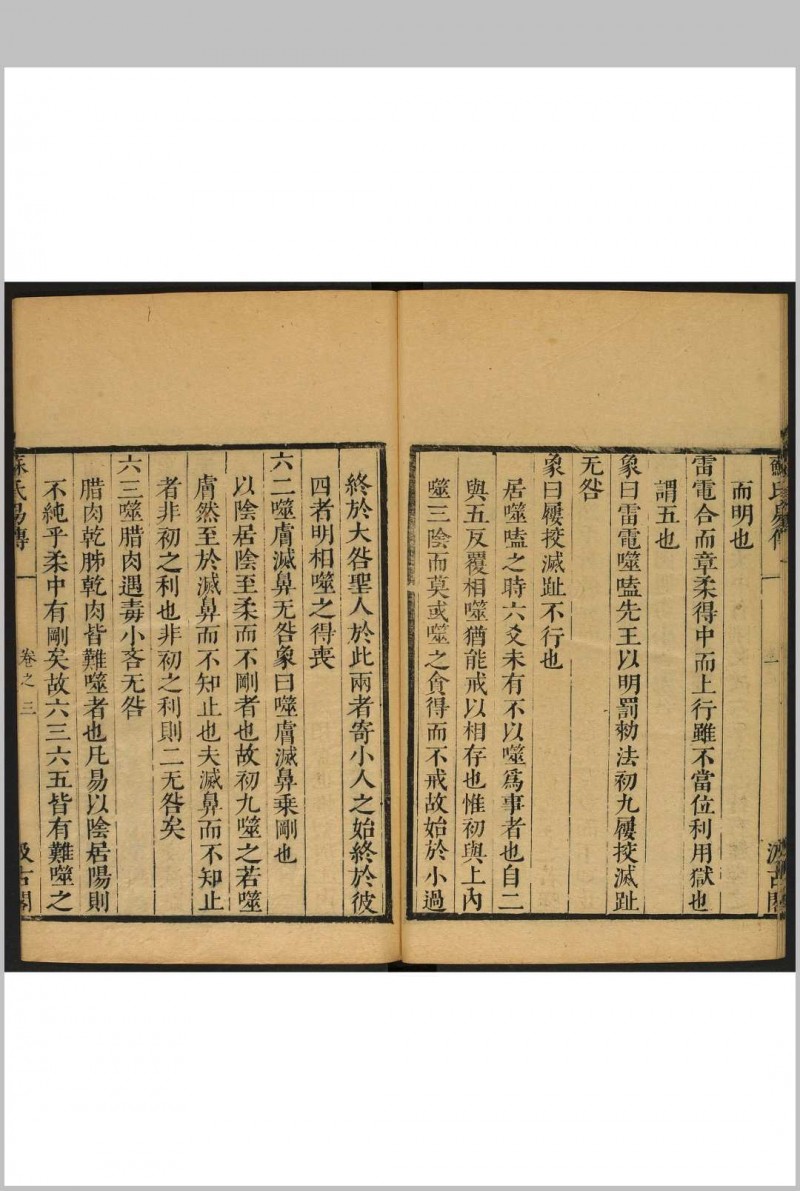 而明也
雷電合而章柔得中而上行雖不當位利用獄也
謂五也
象曰雷電噬嗑先王以明罰勑法初九屨校滅趾
无咎
象曰屨挍滅趾不行也
居噬嗑之時六爻未有不以噬爲事者也自二
與五反覆相噬猶能戒以相存也惟初與上内
噬三陰而莫或噬之貪得而不戒故始於小過
終於大咎聖人於此兩者寄小人之始終於彼
四者明相噬之得喪
六二噬膚滅鼻无咎象曰噬膚滅鼻乘剛也
以陰居陰至柔而不剛者也故初九噬之若噬
膚然至於滅鼻而不知止也夫滅鼻而不知止
者非初之利也非初之利則二无咎矣
六三噬腊肉遇毒小吝无咎
腊肉乾胏乾肉皆難噬者也凡易以陰居陽則
不純乎柔中有剛矣故六三六五皆有難噬之
蘇氏易傳
卷之三
汲古閣